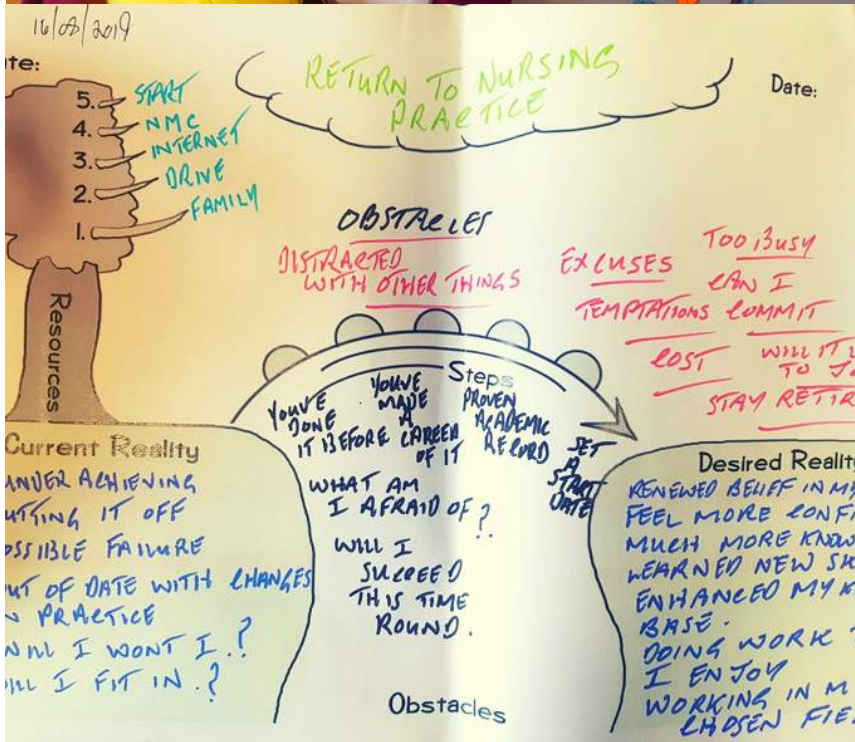 16/08/2019
te:
Date:
RETURN TO NURSING
PRACTICE
5. START
4. NMC
3. INTERNET
2. DRIVE
1. FAMILY
Resources
OBSTACLES
DISTRACTED
WITH OTHER THINGS
EXCUSES
TEMPTATIONS
COST
TOO BUSY
CAN I
COMMIT
WILL IT
TO
STAY RETIR
Steps
YOUVE
DONE
IT BEFORE
YOUVE
MADE
A
CAREER
OF IT
PROVEN
ACADEMIC
RECORD
SET
A
START
DATE
WHAT AM
I AFRAID OF?
WILL I
SUCCEED
THIS TIME
ROUND.
Obstacles
Current Reality
UNDER ACHIEVING
UTTING IT OFF
OSSIBLE FAILURE
UT OF DATE WITH CHANGES
N PRACTICE
WILL I WONT I.?
ILL I FIT IN.?
Desired Reality
RENEWED BELIEF IN MY
FEEL MORE CONFI
MUCH MORE KNOW
LEARNED NEW SK
ENHANCED MY K
BASE.
DOING WORK
I ENJOY
WORKING IN M
CHOSEN FIE